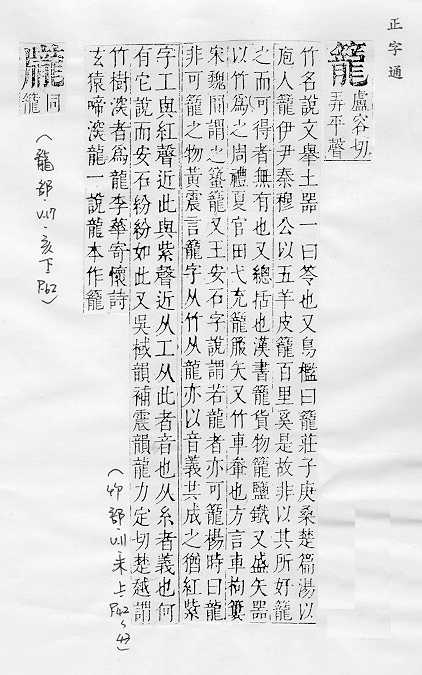 正字通
籠 盧容切
弄平聲
竹名說文舉土器一曰笭也又鳥檻曰籠莊子庚桑楚篇湯以
庖人籠伊尹秦穆公以五羊皮籠百里奚是故非以其所好籠
之而可得者無有也又總括也漢書籠貨物籠鹽鐵又盛矢器
以竹爲之周禮夏官田弋充籠箙矢又竹車軬也方言車枸簍
宋魏間謂之籠又王安石字說謂若龍者亦可籠楊時曰龍
非可籠之物黃震言籠字从竹从龍亦以音義共成之猶紅紫
字工與紅聲近此與紫聲近从工从此者音也从糸者義也何
有它說而安石紛紛如此又吳棫韻補震韻龍力定切楚越謂
竹樹深者爲龍李華寄懷詩
玄猿啼深龍一說龍本作籠
(竹部.未上 P42~43)
同
籠
(龍部.亥下 P62)